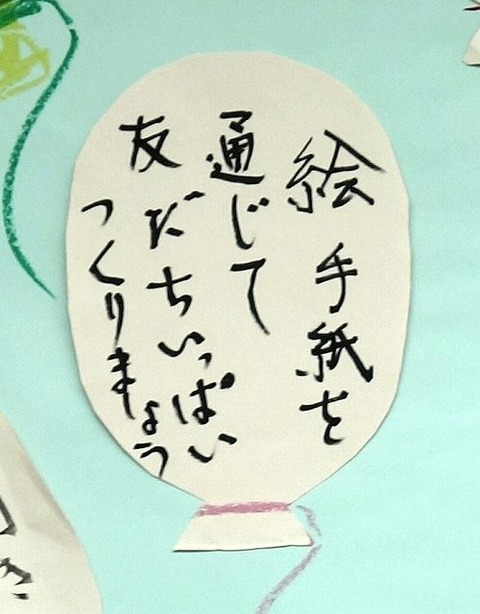 絵手紙を
通じて
友だちいっぱい
つくりましょう